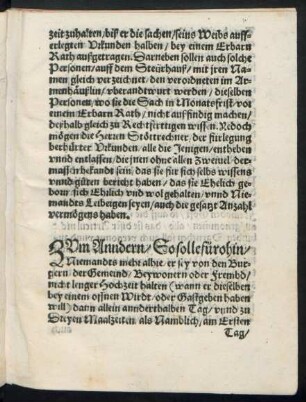 zeit zuhalten / biß er die sachen / seins Weibs auff-
erlegten Urkunden halben / bey einem Erbarn
Rath außgetragen. Darneben sollen auch solche
Personen / auff dem Steürhauß / mit jren Na-
men gleich verzeichnet / den verordneten im Ar-
menhäußlin / überandtwurt werden / dieselben
Personen / wo sie die Sach in Monatsfrist / vor
einem Erbarn Rath / nicht außfindig machen /
deßhalb gleich zu Rechtfertigen wissen. Jedoch
mögen die Herrn Stöttrechner / der fürlegung
berhürter Urkunden / alle die Jenigen / entheben
unnd entlassen / die jnen ohne allen Zweiuel der-
massen bekandt sein / das sie für sich selbs wissens
unnd gůten bericht haben / das sie Ehelich gebo-
born sich Ehrlich und wol gehalten / unnd Nie-
mandts Leibeigen seyen / auch die gesatzt Anzahl
vermögens haben.
Zum Anndern / So solle fürohin /
Niemandts nicht allhie / er sey von den Bur-
gern / der Gemeind / Beywonern oder Frembd /
nicht lenger Hochzeit halten (wann er dieselben
bey einem offnen Wirdt / oder Gastgeben haben
will) dann allein anndert halben Tag / unnd zů
Dreyen Maalzeiten / als Namblich / am Ersten
Tag /